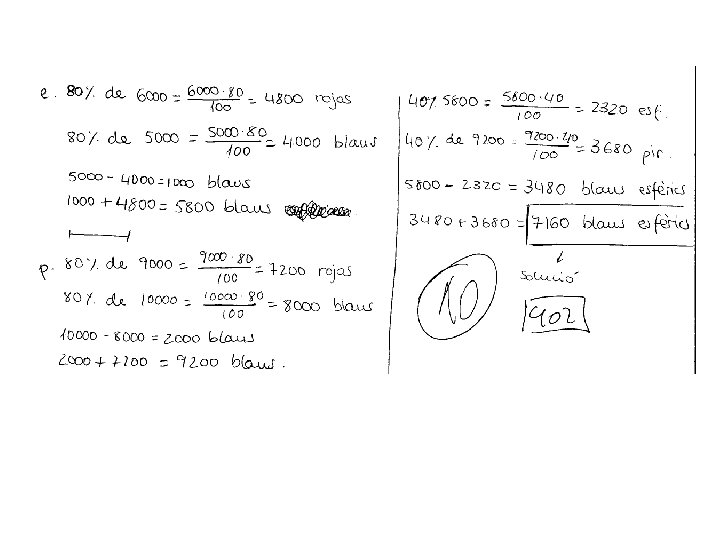 e. 80% de 6000 = 6000·80/100 = 4800 rojas
80% de 5000 = 5000·80/100 = 4000 blaus
5000 - 4000 = 1000 blaus
1000 + 4800 = 5800 blaus
p. 80% de 9000 = 9000·80/100 = 7200 rojas
80% de 10000 = 10000·80/100 = 8000 blaus
10000 - 8000 = 2000 blaus
2000 + 7200 = 9200 blaus.
40% 5800 = 5800·40/100 = 2320 esf.
40% de 9200 = 9200·40/100 = 3680 pir.
5800 - 2320 = 3480 blaus esfèrics
3480 + 3680 = 7160 blaus esfèrics
Solució
10
402